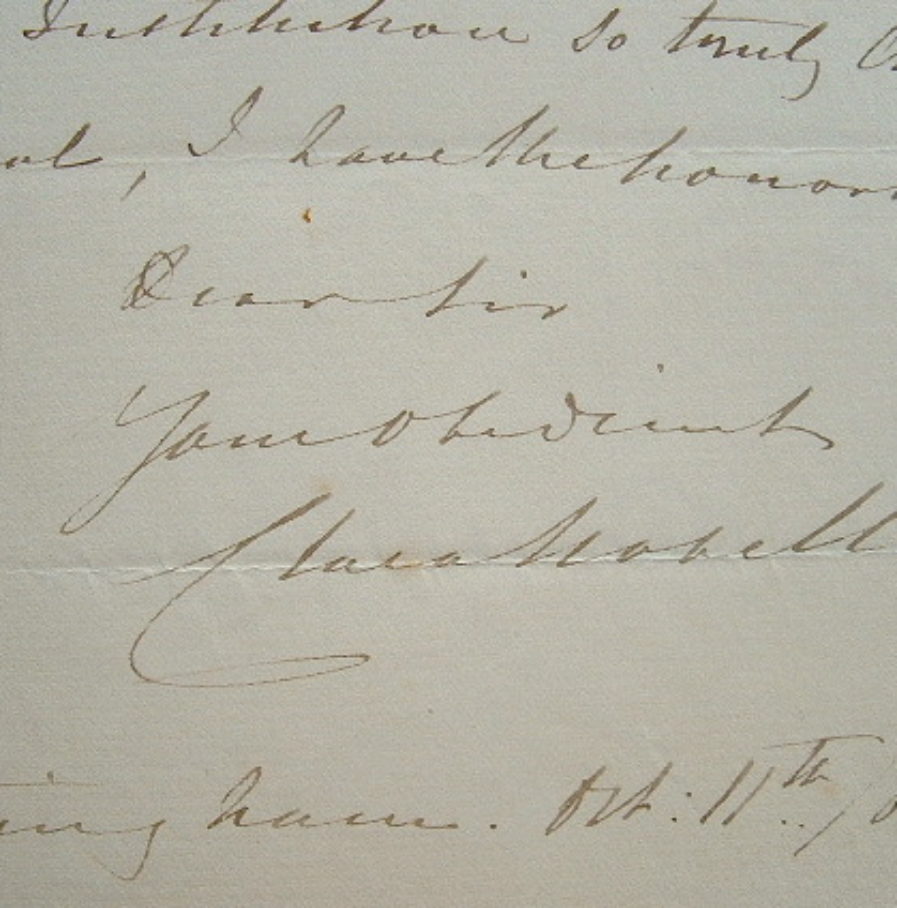 Institution so truly
, I have the honor
Dear Sir
Your obedient
Clara Novell
ingham. Oct: 11th /